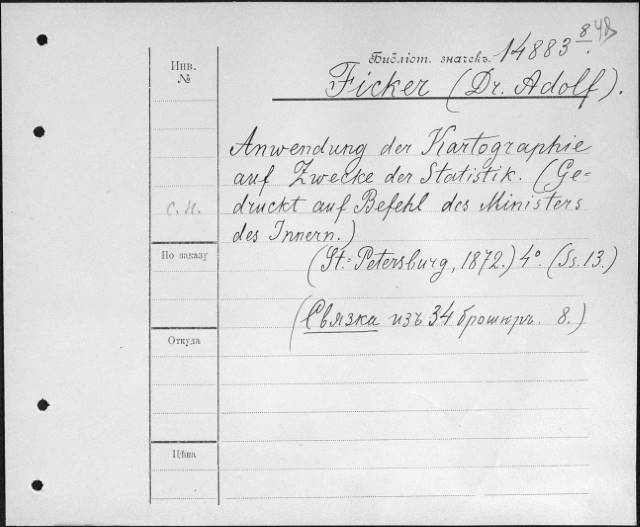 Инв. №
Библіот. значекъ 14883 8/48
Ficker (Dr. Adolf).
Anwendung der Kartographie
auf Zwecke der Statistik. (Ge=
druckt auf Befehl des Ministers
des Innern.)
(St=Petersburg, 1872.) 4°. (Ss. 13.)
(Связка изъ 34 брошюръ. 8.)
С. И.
По заказу
Откуда
Цѣна